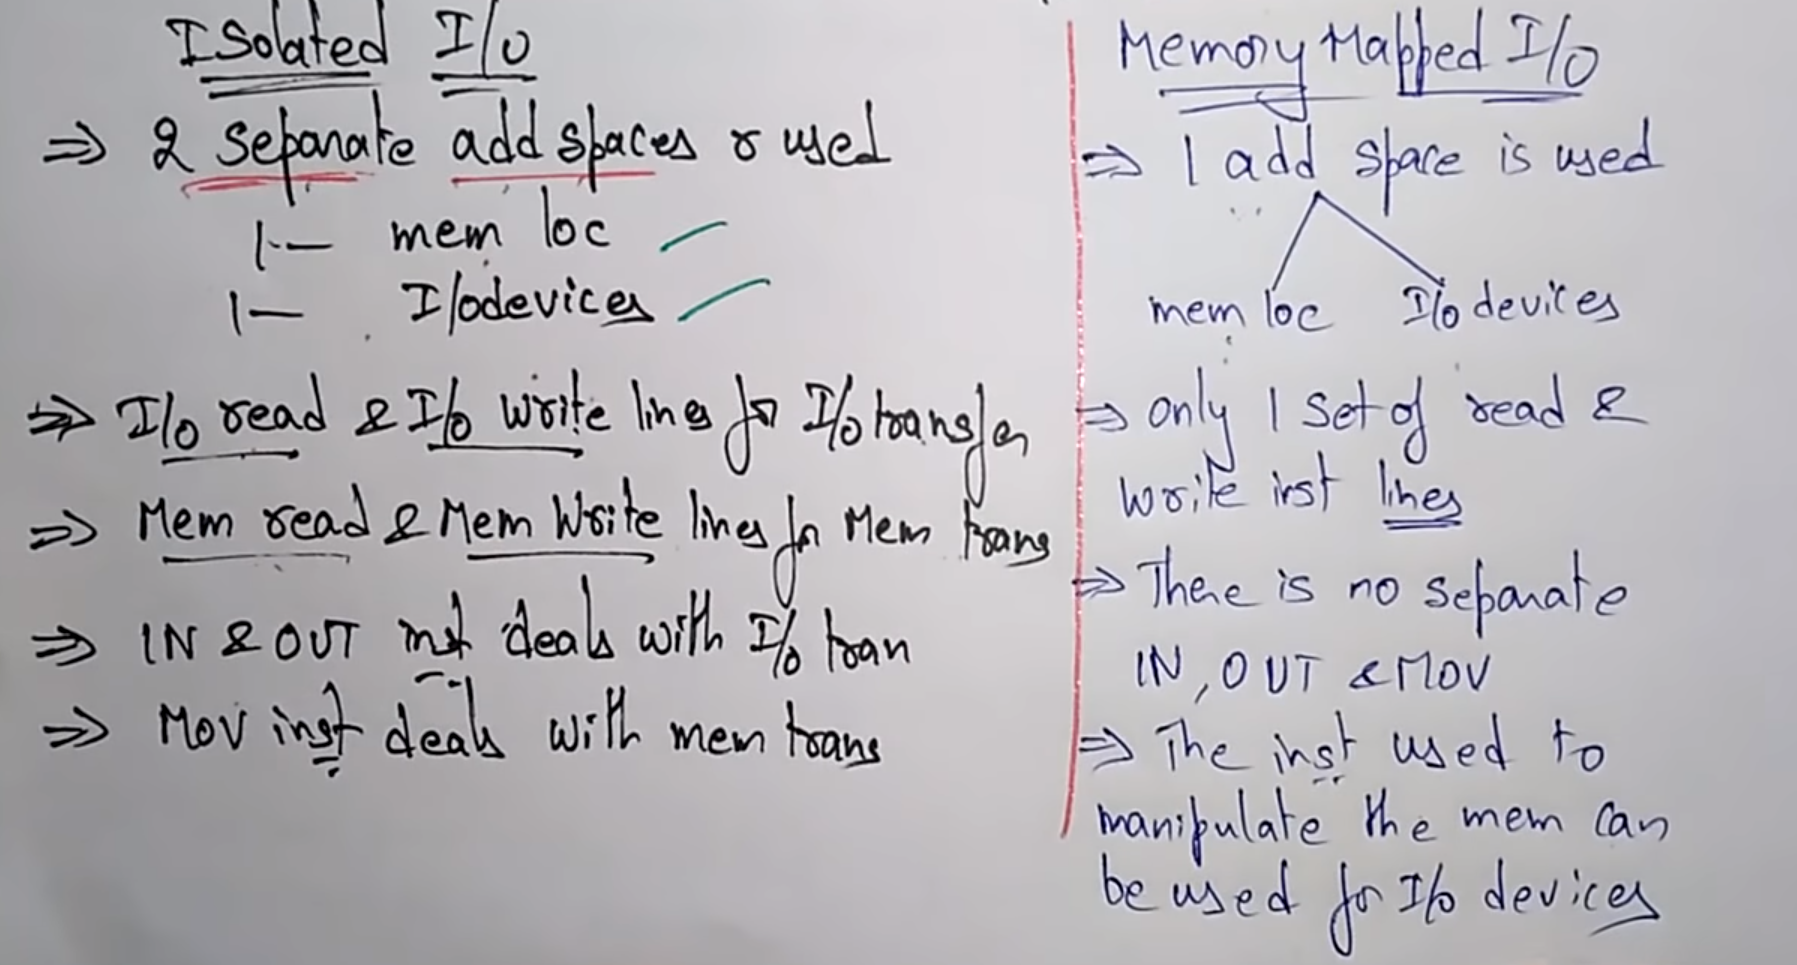 Isolated I/O
⇒ 2 separate add spaces r used
1 — mem loc
1 — I/o devices
⇒ I/o read & I/o write lines for I/o transfer
⇒ Mem read & Mem Write lines for Mem trans
⇒ IN & OUT inst deals with I/o tran
⇒ Mov inst deals with mem trans
Memory Mapped I/O
⇒ 1 add space is used
mem loc I/o devices
⇒ only 1 set of read &
write inst lines
⇒ There is no separate
IN, OUT & MOV
⇒ The inst used to
manipulate the mem can
be used for I/o devices